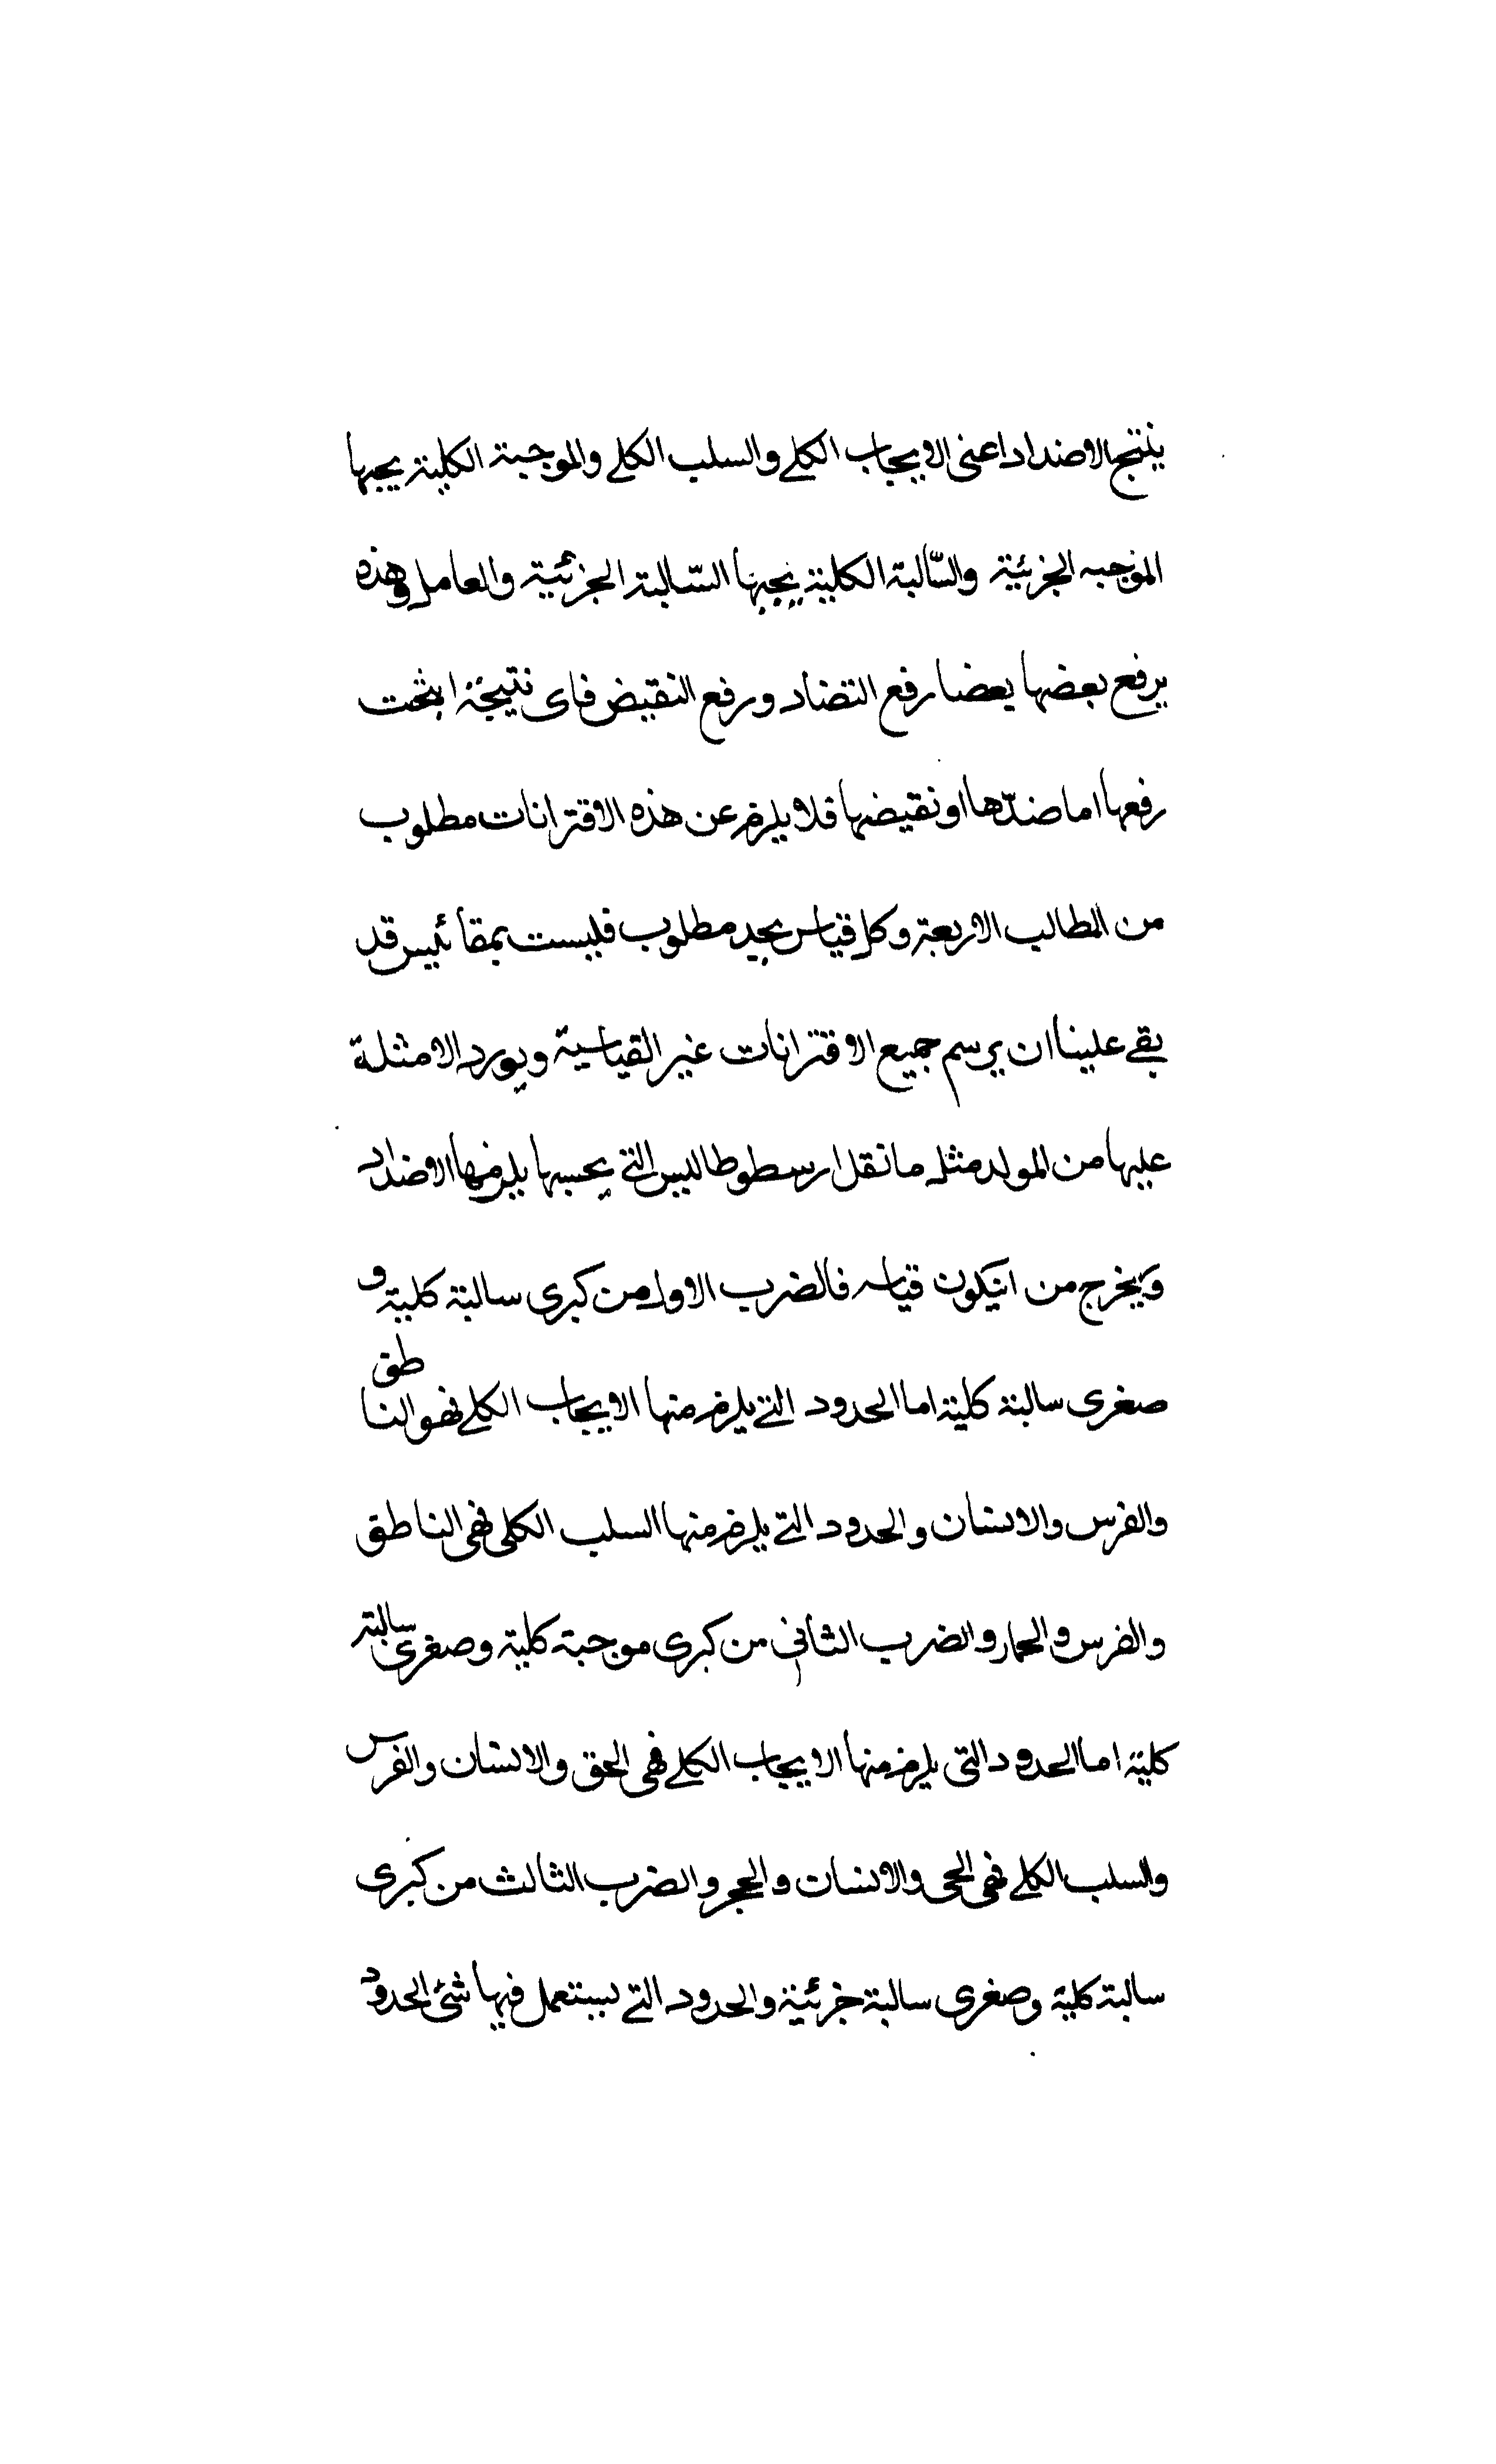 ينتج الاضداد اعنى الايجاب الكلے والسلب الكلے والموجبة الكلية يجبها
الموجبه الجزئية والسّالبة الكلية يجبها السّالبة الجزئية والعامل وهذه
يرفع بعضها بعضا رفع التضاد ورفع النقيض فاى نتيجة ابثحت
رفعها اما ضدّها او نقيضها فلا يلزم عن هذه الاقترانات مطلوب
من المطالب الاربعة وكل قياس بجد مطلوب فليست بمقائيس قد
بقے علينا ان يرسم جميع الاقترانات غير القياسية ويورد الامثلة
عليها من المولد مثل ما نقل ارسطوطاليس التے بحسبها يلزمها الاضداد
ويخرج من انيكون قياسه فالضرب الاول من كبرى سالبة كلية و
صغرى سالبة كلية اما الحدود التے يلزم منها الايجاب الكلے فهو الناطق
والفرس والانسان والحدود التے يلزم منها السلب الكلى فهى الناطق
والفرس والحمار والضرب الثانى من كبرى موجبة كلية وصغرى سالبة
كلية اما الحدود التى يلزم منها الايجاب الكلے فهى الحق والانسان والفرس
والسلب الكلے فهى الحى والانسان والحجر والضرب الثالث من كبرى
سالبة كلية وصغرى سالبة جزئية والحدود التے يستعمل فيها شئ الحدود